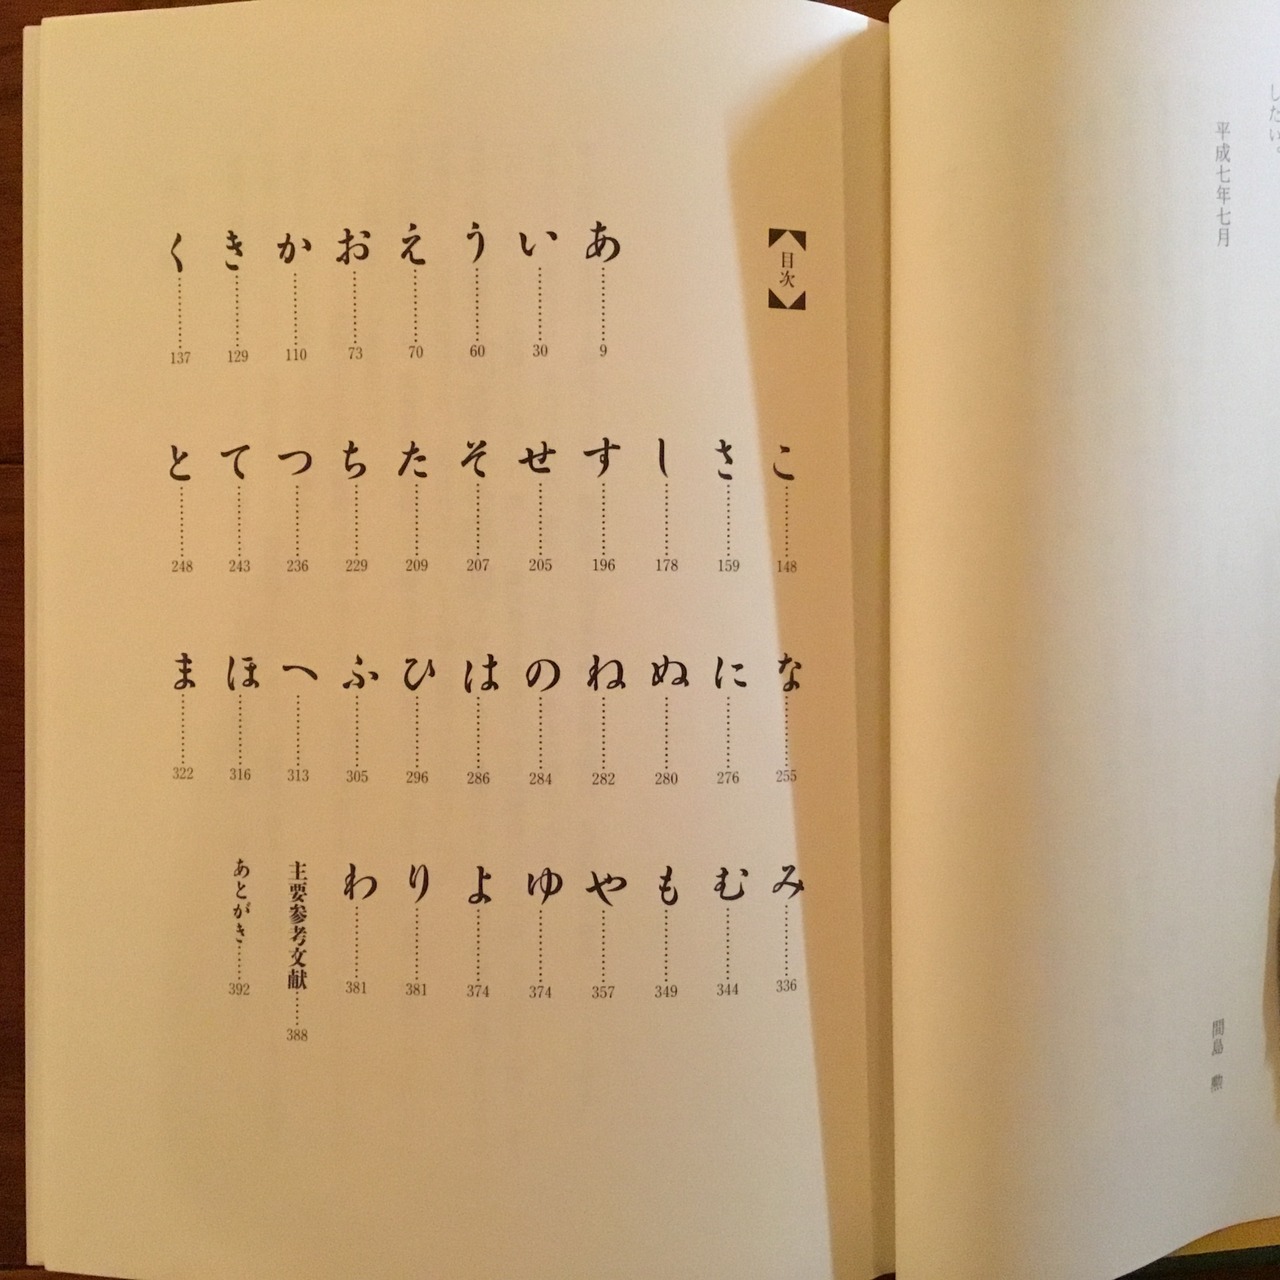 したい。
平成七年七月
間島 勲
目次
あ………9
い………30
う………60
え………70
お………73
か………110
き………129
く………137
こ………148
さ………159
し………178
す………196
せ………205
そ………207
た………209
ち………229
つ………236
て………243
と………248
な………255
に………276
ぬ………280
ね………282
の………284
は………286
ひ………296
ふ………305
へ………313
ほ………316
ま………322
み………336
む………344
も………349
や………357
ゆ………374
よ………374
り………381
わ………381
主要参考文献……388
あとがき……392